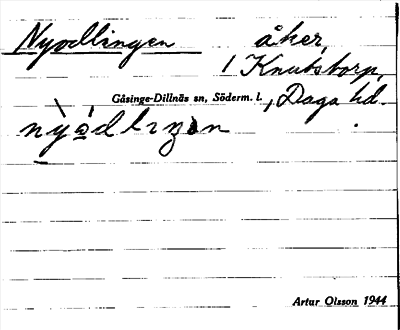 Nyodlingen åker,
/ Knutstorp,
Gåsinge-Dillnäs sn, Söderm. l. , Daga hd.
Artur Olsson 1944